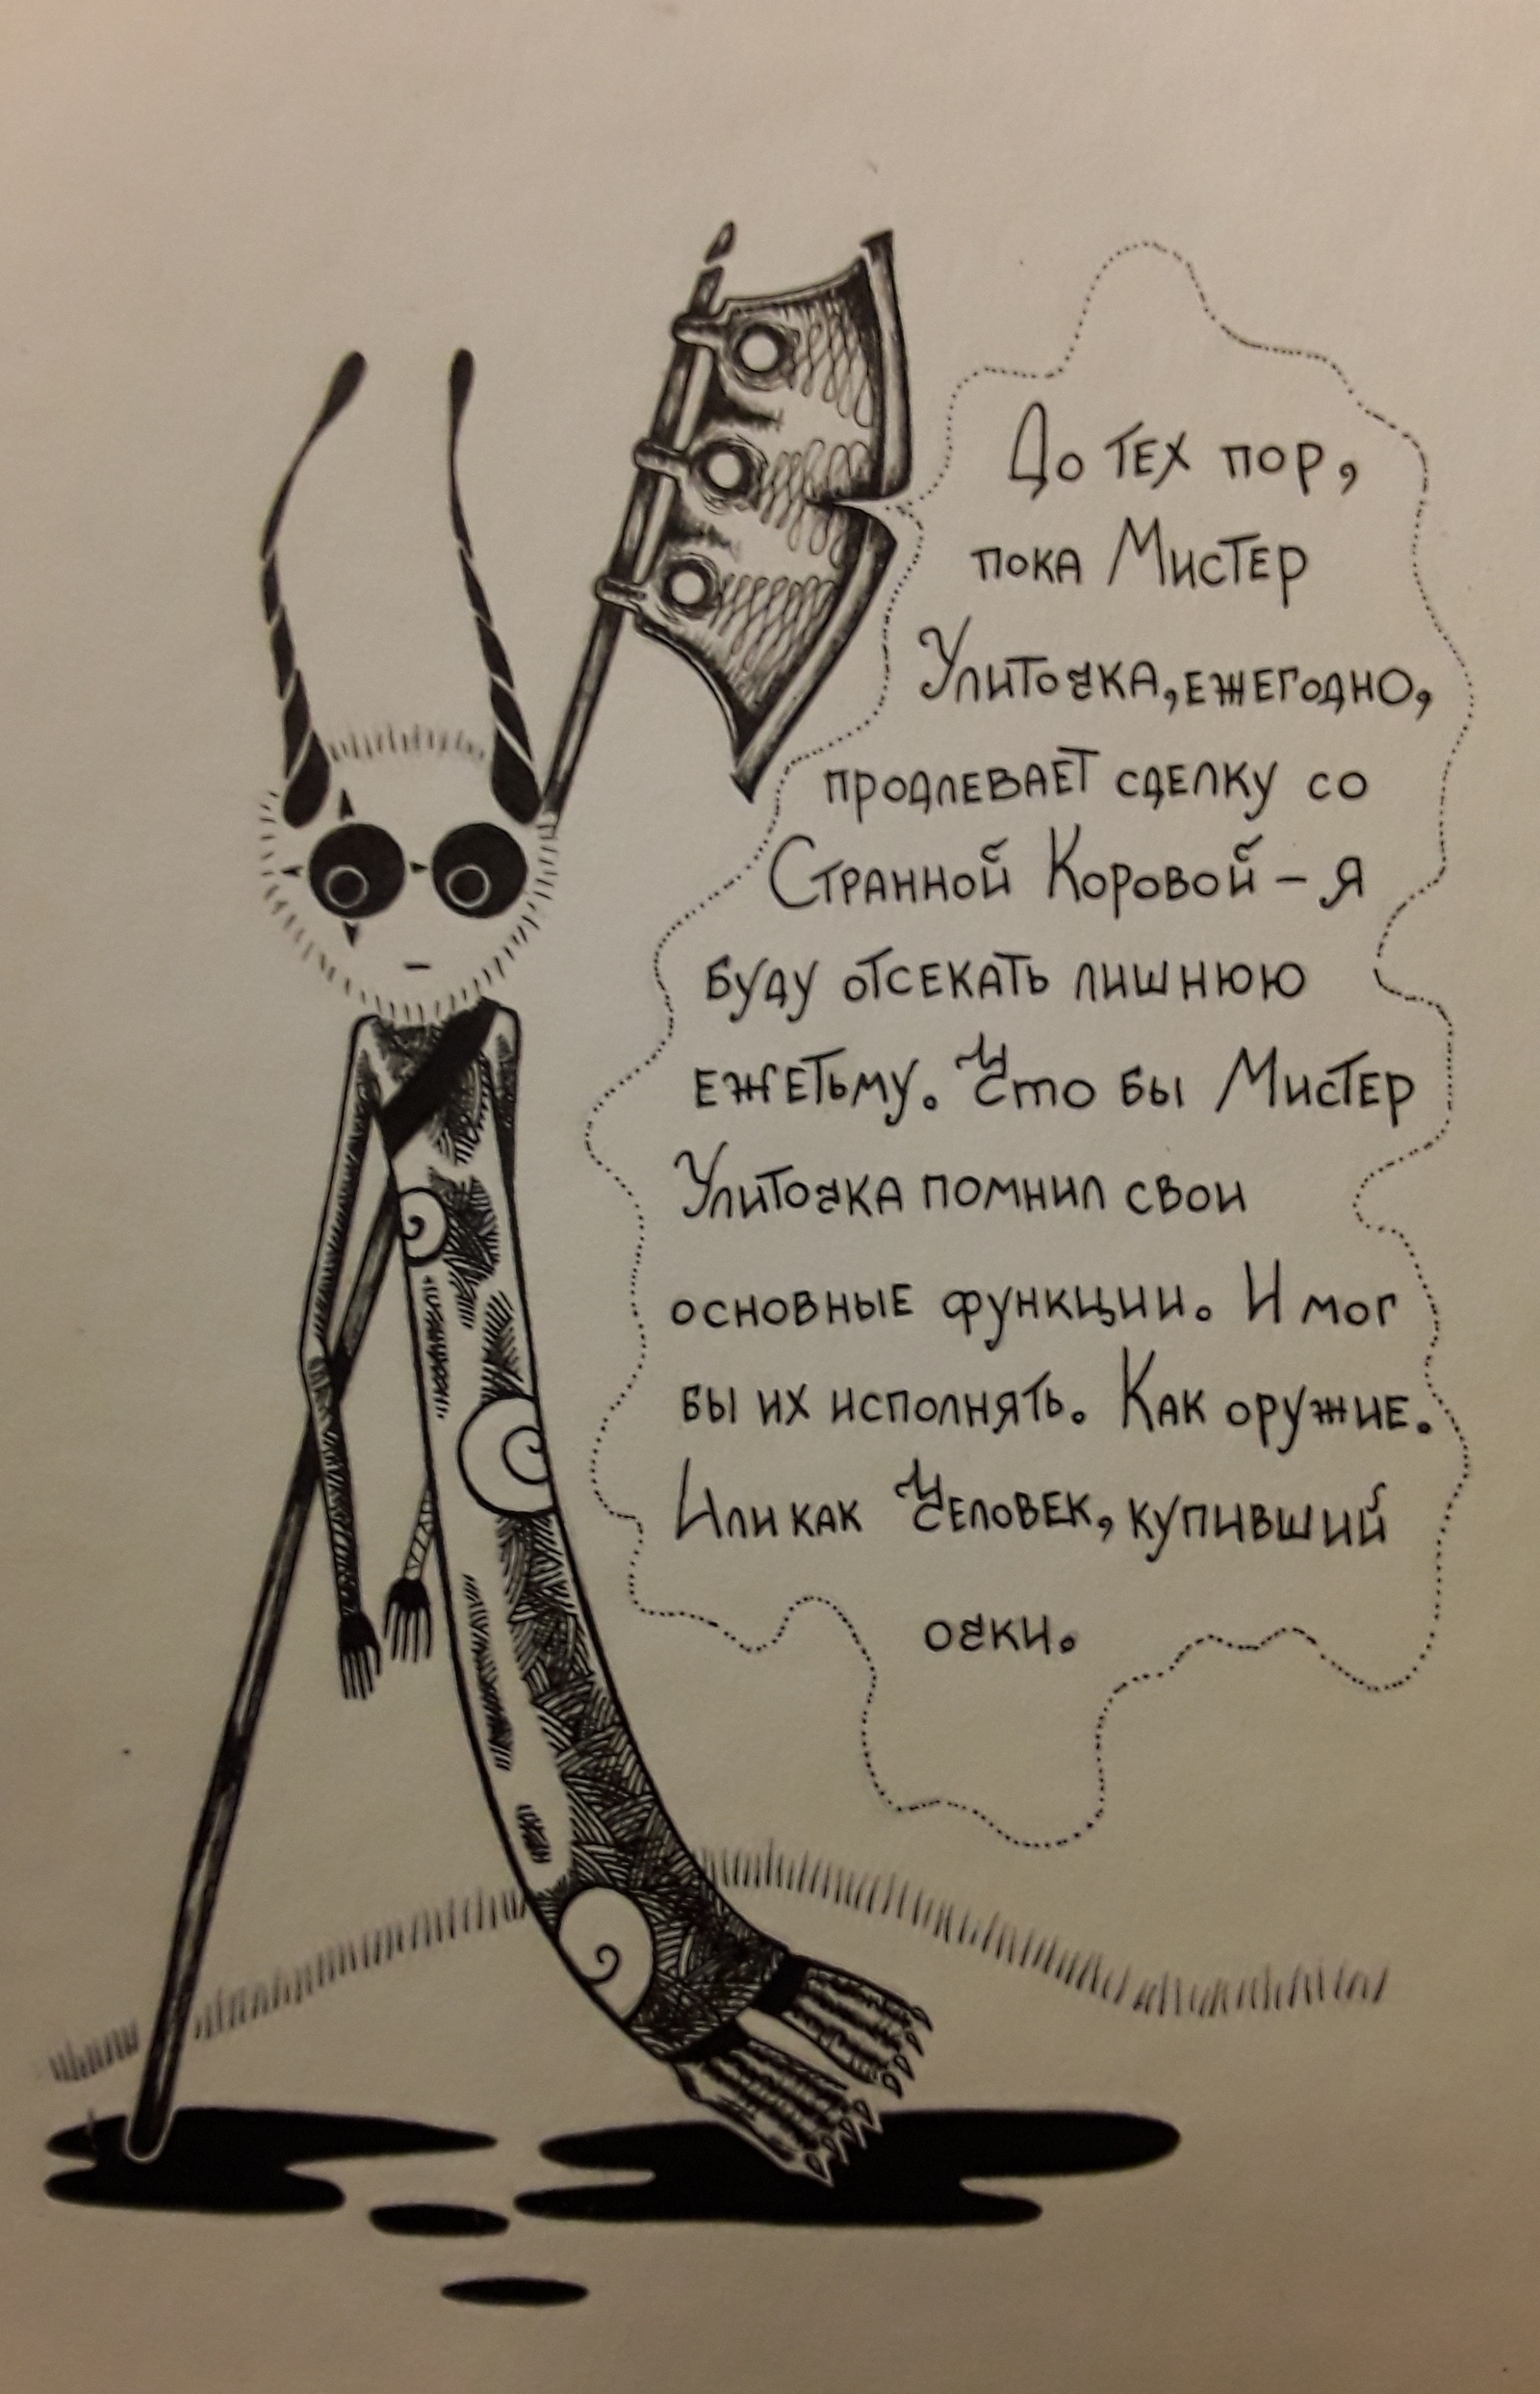 До тех пор,
пока Мистер
Улиточка, ежегодно,
продлевает сделку со
Странной Коровой – я
буду отсекать лишнюю
ежетьму. Что бы Мистер
Улиточка помнил свои
основные функции. И мог
бы их исполнять. Как оружие.
Или как Человек, купивший
очки.